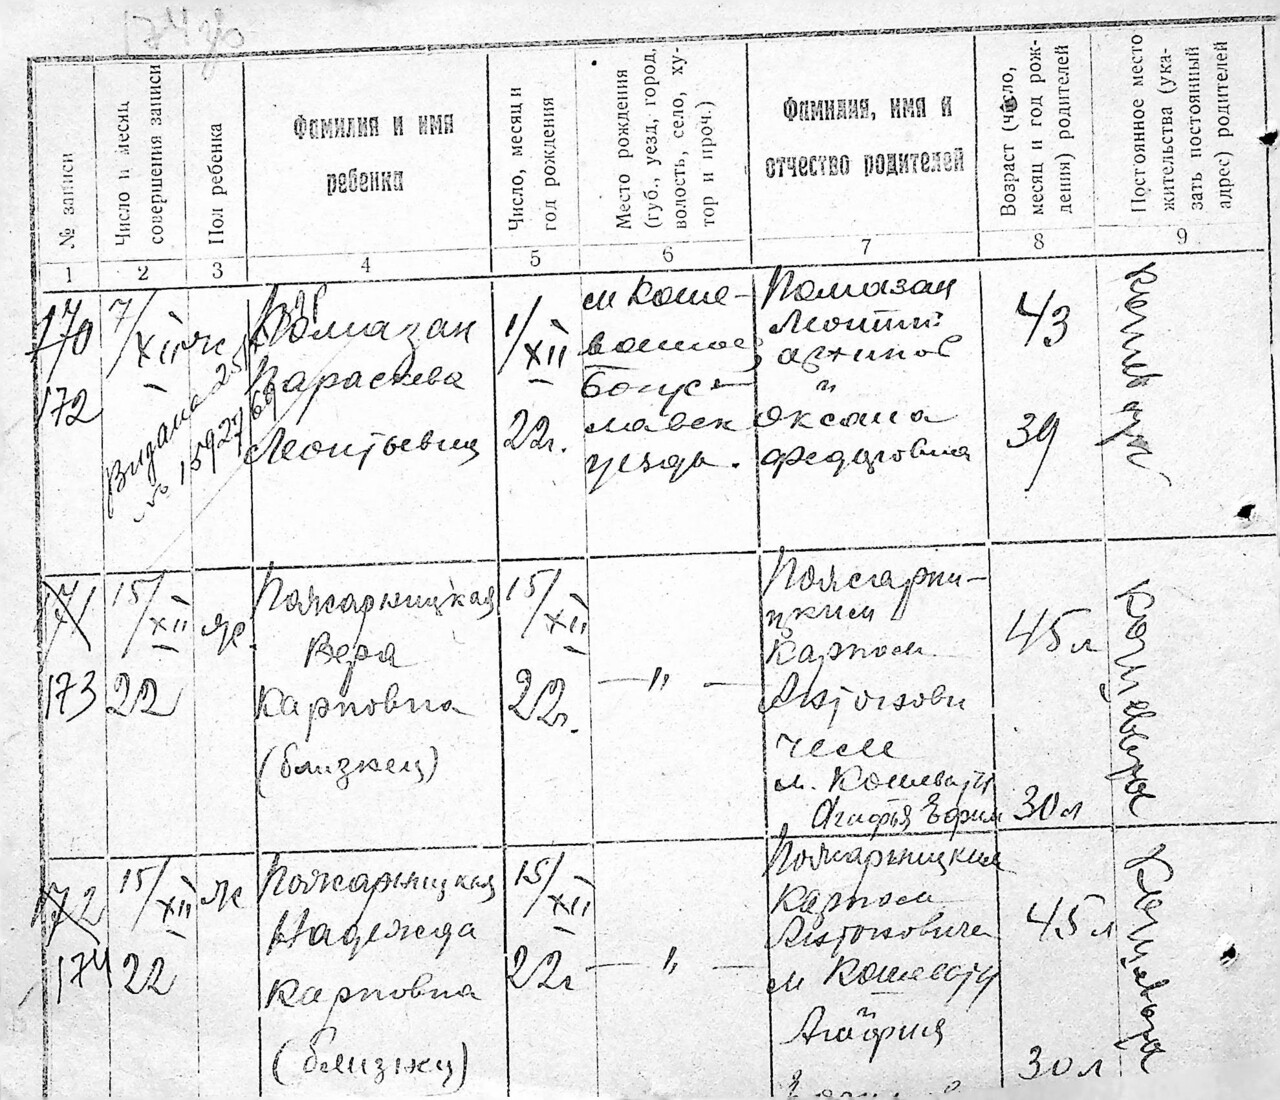 № записи
Число и месяц
совершения записи
Пол ребенка
Фамилия и имя
ребенка
Число, месяц и
год рождения
Место рождения
(губ., уезд, город,
волость, село, ху-
тор и проч.)
Фамилия, имя и
отчество родителей
Возраст (число,
месяц и год рож-
дения) родителей
Постоянное место
жительства (ука-
зать постоянный
адрес) родителей
1 2 3 4 5 6 7 8 9
170
172
7/XII
ж
Видана
№ 15927
Помазан
Параскева
Леонтьевна
1/XII
22г.
м Коше-
ватое
Богус-
лавск
уезда.
Помазан
Леонтий
Архипов
и
Оксана
Федоровна
43
39
171
173
15/XII
22
ж.
Пожарницкая
Вера
Карповна
(близнец)
15/XII
22г.
— " —
Пожарни-
цким
Карпом
Антонови
чем
м. Кошеваты
Агафья Ефим
45 л
30 л
172
174
15/XII
22
ж
Пожарницкая
Надежда
Карповна
(близнец)
15/XII
22г
— " —
Пожарницким
Карпом
Антоновичем
м Кошеваты
и
45 л
30 л